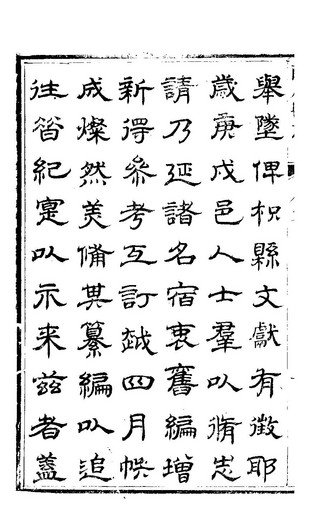 舉墜俾枳縣文獻有徵耶
歲庚戌邑人士羣以脩志
請乃延諸名宿裒舊編增
新得參考互訂越四月帙
成燦然美備其纂編以追
往昔紀寔以示来茲者蓋